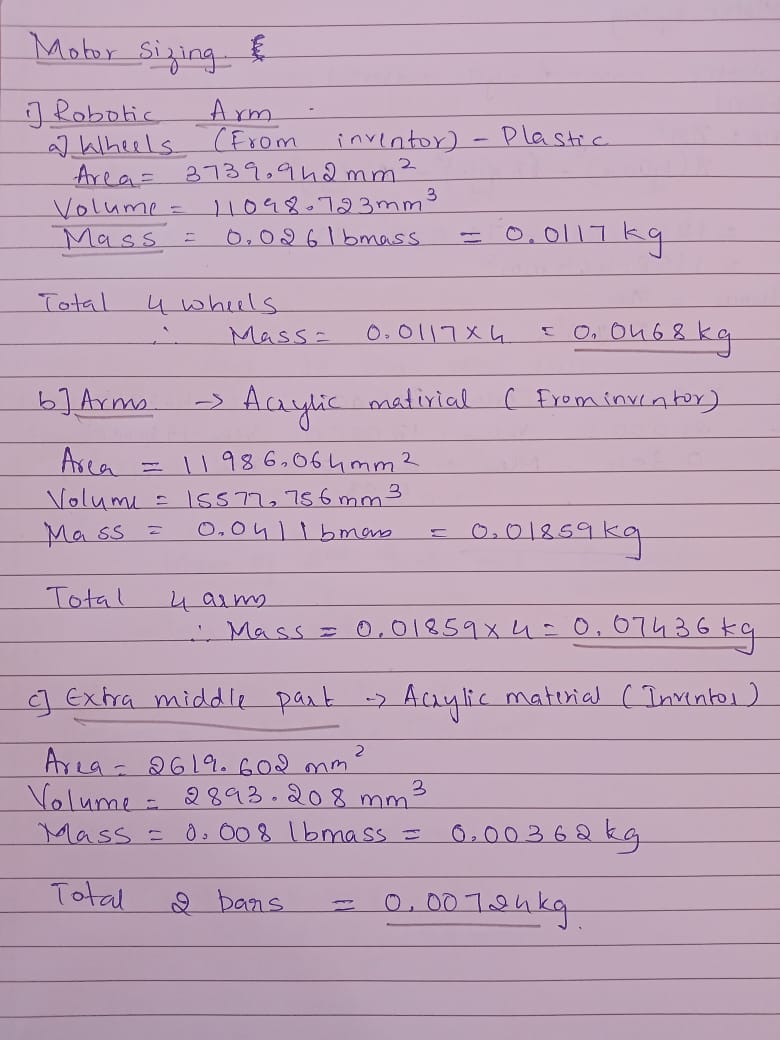 Motor Sizing.
1] Robotic Arm
a] Wheels (From inventor) - Plastic
Area = 3739.942 mm²
Volume = 11098.723 mm³
Mass = 0.026 lbmass = 0.0117 kg
Total 4 wheels
∴ Mass = 0.0117 x 4 = 0.0468 kg
b] Arms -> Acrylic matirial (From inventor)
Area = 11986.064 mm²
Volume = 15577.756 mm³
Mass = 0.041 lbmass = 0.01859 kg
Total 4 arms
∴ Mass = 0.01859 x 4 = 0.07436 kg
c] Extra middle part -> Acrylic material (Inventor)
Area = 2619.602 mm²
Volume = 2893.208 mm³
Mass = 0.008 lbmass = 0.00362 kg
Total 2 bars = 0.00724 kg.